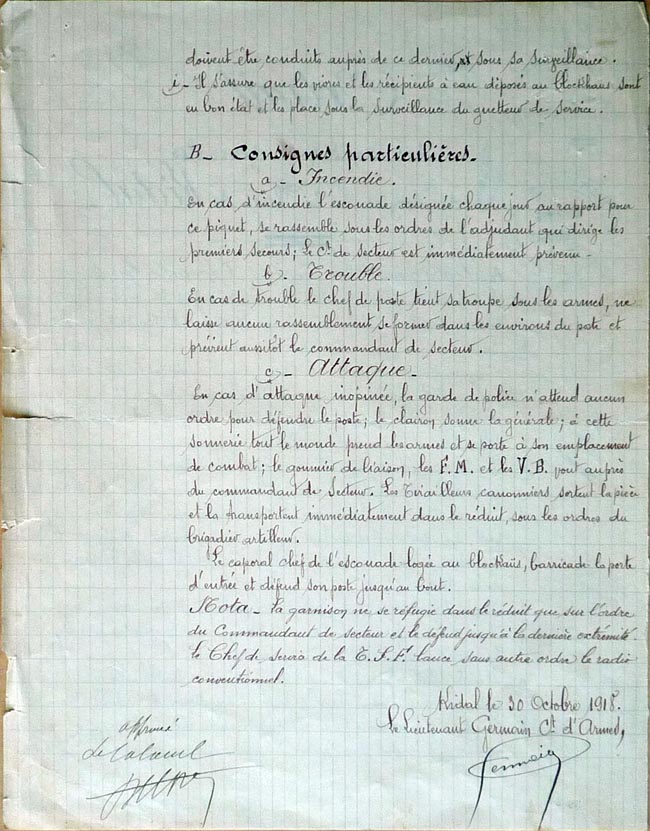 doivent être conduits auprès de ce dernier, et sous sa surveillance.
i - Il s'assure que les vivres et les récipients à eau déposés au blockhaus sont
en bon état et les place sous la surveillance du guetteur de service.
B - Consignes particulières.
a - Incendie.
En cas d'incendie l'escouade désignée chaque jour au rapport pour
ce piquet, se rassemble sous les ordres de l'adjudant qui dirige les
premiers secours; le Ct de secteur est immédiatement prévenu -
b - Trouble.
En cas de trouble le chef de poste tient sa troupe sous les armes, ne
laisse aucun rassemblement se former dans les environs du poste et
prévient aussitôt le commandant de secteur.
c - Attaque -
En cas d'attaque inopinée, la garde de police n'attend aucun
ordre pour défendre le poste; le clairon sonne la générale; à cette
sonnerie tout le monde prend les armes et se porte à son emplacement
de combat; le goumier de liaison, les F.M. et les V.B. vont auprès
du commandant de Secteur. Les Tirailleurs canonniers sortent la pièce
et la transportent immédiatement dans le réduit, sous les ordres du
brigadier artilleur.
Le caporal chef de l'escouade logée au blockaüs, barricade la porte
d'entrée et défend son poste jusqu'au bout.
Nota - La garnison ne se réfugie dans le réduit que sur l'ordre
du Commandant de secteur et le défend jusqu'à la dernière extrémité.
le Chef de service de la T.S.F. lance sans autre ordre le radio
conventionnel.
Kidal le 30 Octobre 1918.
Le Lieutenant Germain Ct d'Armes,
approuvé
Le Colonel
Germain